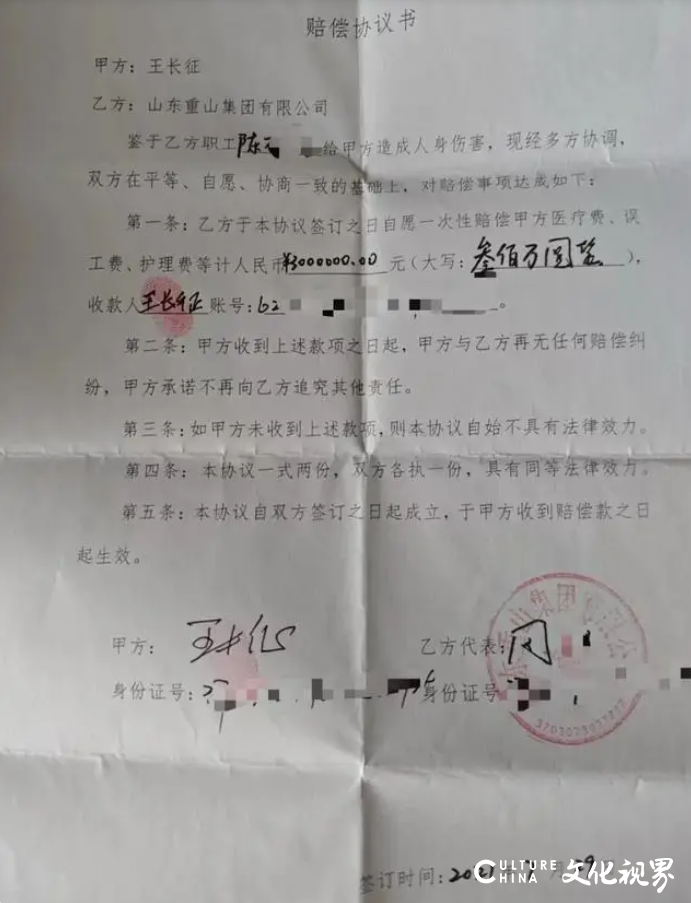 赔偿协议书
甲方：王长征
乙方：山东重山集团有限公司
鉴于乙方职工陈 给甲方造成人身伤害，现经多方协调，
双方在平等、自愿、协商一致的基础上，对赔偿事项达成如下：
第一条：乙方于本协议签订之日自愿一次性赔偿甲方医疗费、误
工费、护理费等计人民币¥3000000.00元（大写：叁佰万圆整），
收款人王长征账号：62 。
第二条：甲方收到上述款项之日起，甲方与乙方再无任何赔偿纠
纷，甲方承诺不再向乙方追究其他责任。
第三条：如甲方未收到上述款项，则本协议自始不具有法律效力。
第四条：本协议一式两份，双方各执一份，具有同等法律效力。
第五条：本协议自双方签订之日起成立，于甲方收到赔偿款之日
起生效。
甲方：王长征 乙方代表：周
身份证号： 身份证号
山集团有限公
签订时间：202 月 9
CULTURE CHINA 文化视界